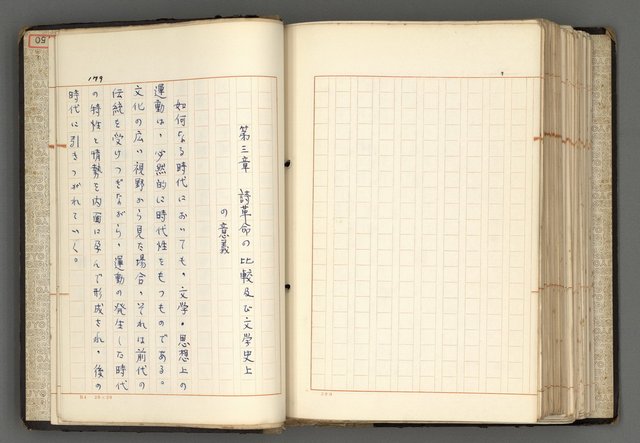 179
第三章 詩革命の比較及び文学史上
の意義
如何なる時代においても、文学・思想上の
運動は、必然的に時代性をもつものである。
文化の広い視野から見た場合、それは前代の
伝統を受けつぎながら、運動の発生した時代
の特性と情勢を内面に孕んで形成され、後の
時代に引きつがれていく。
50